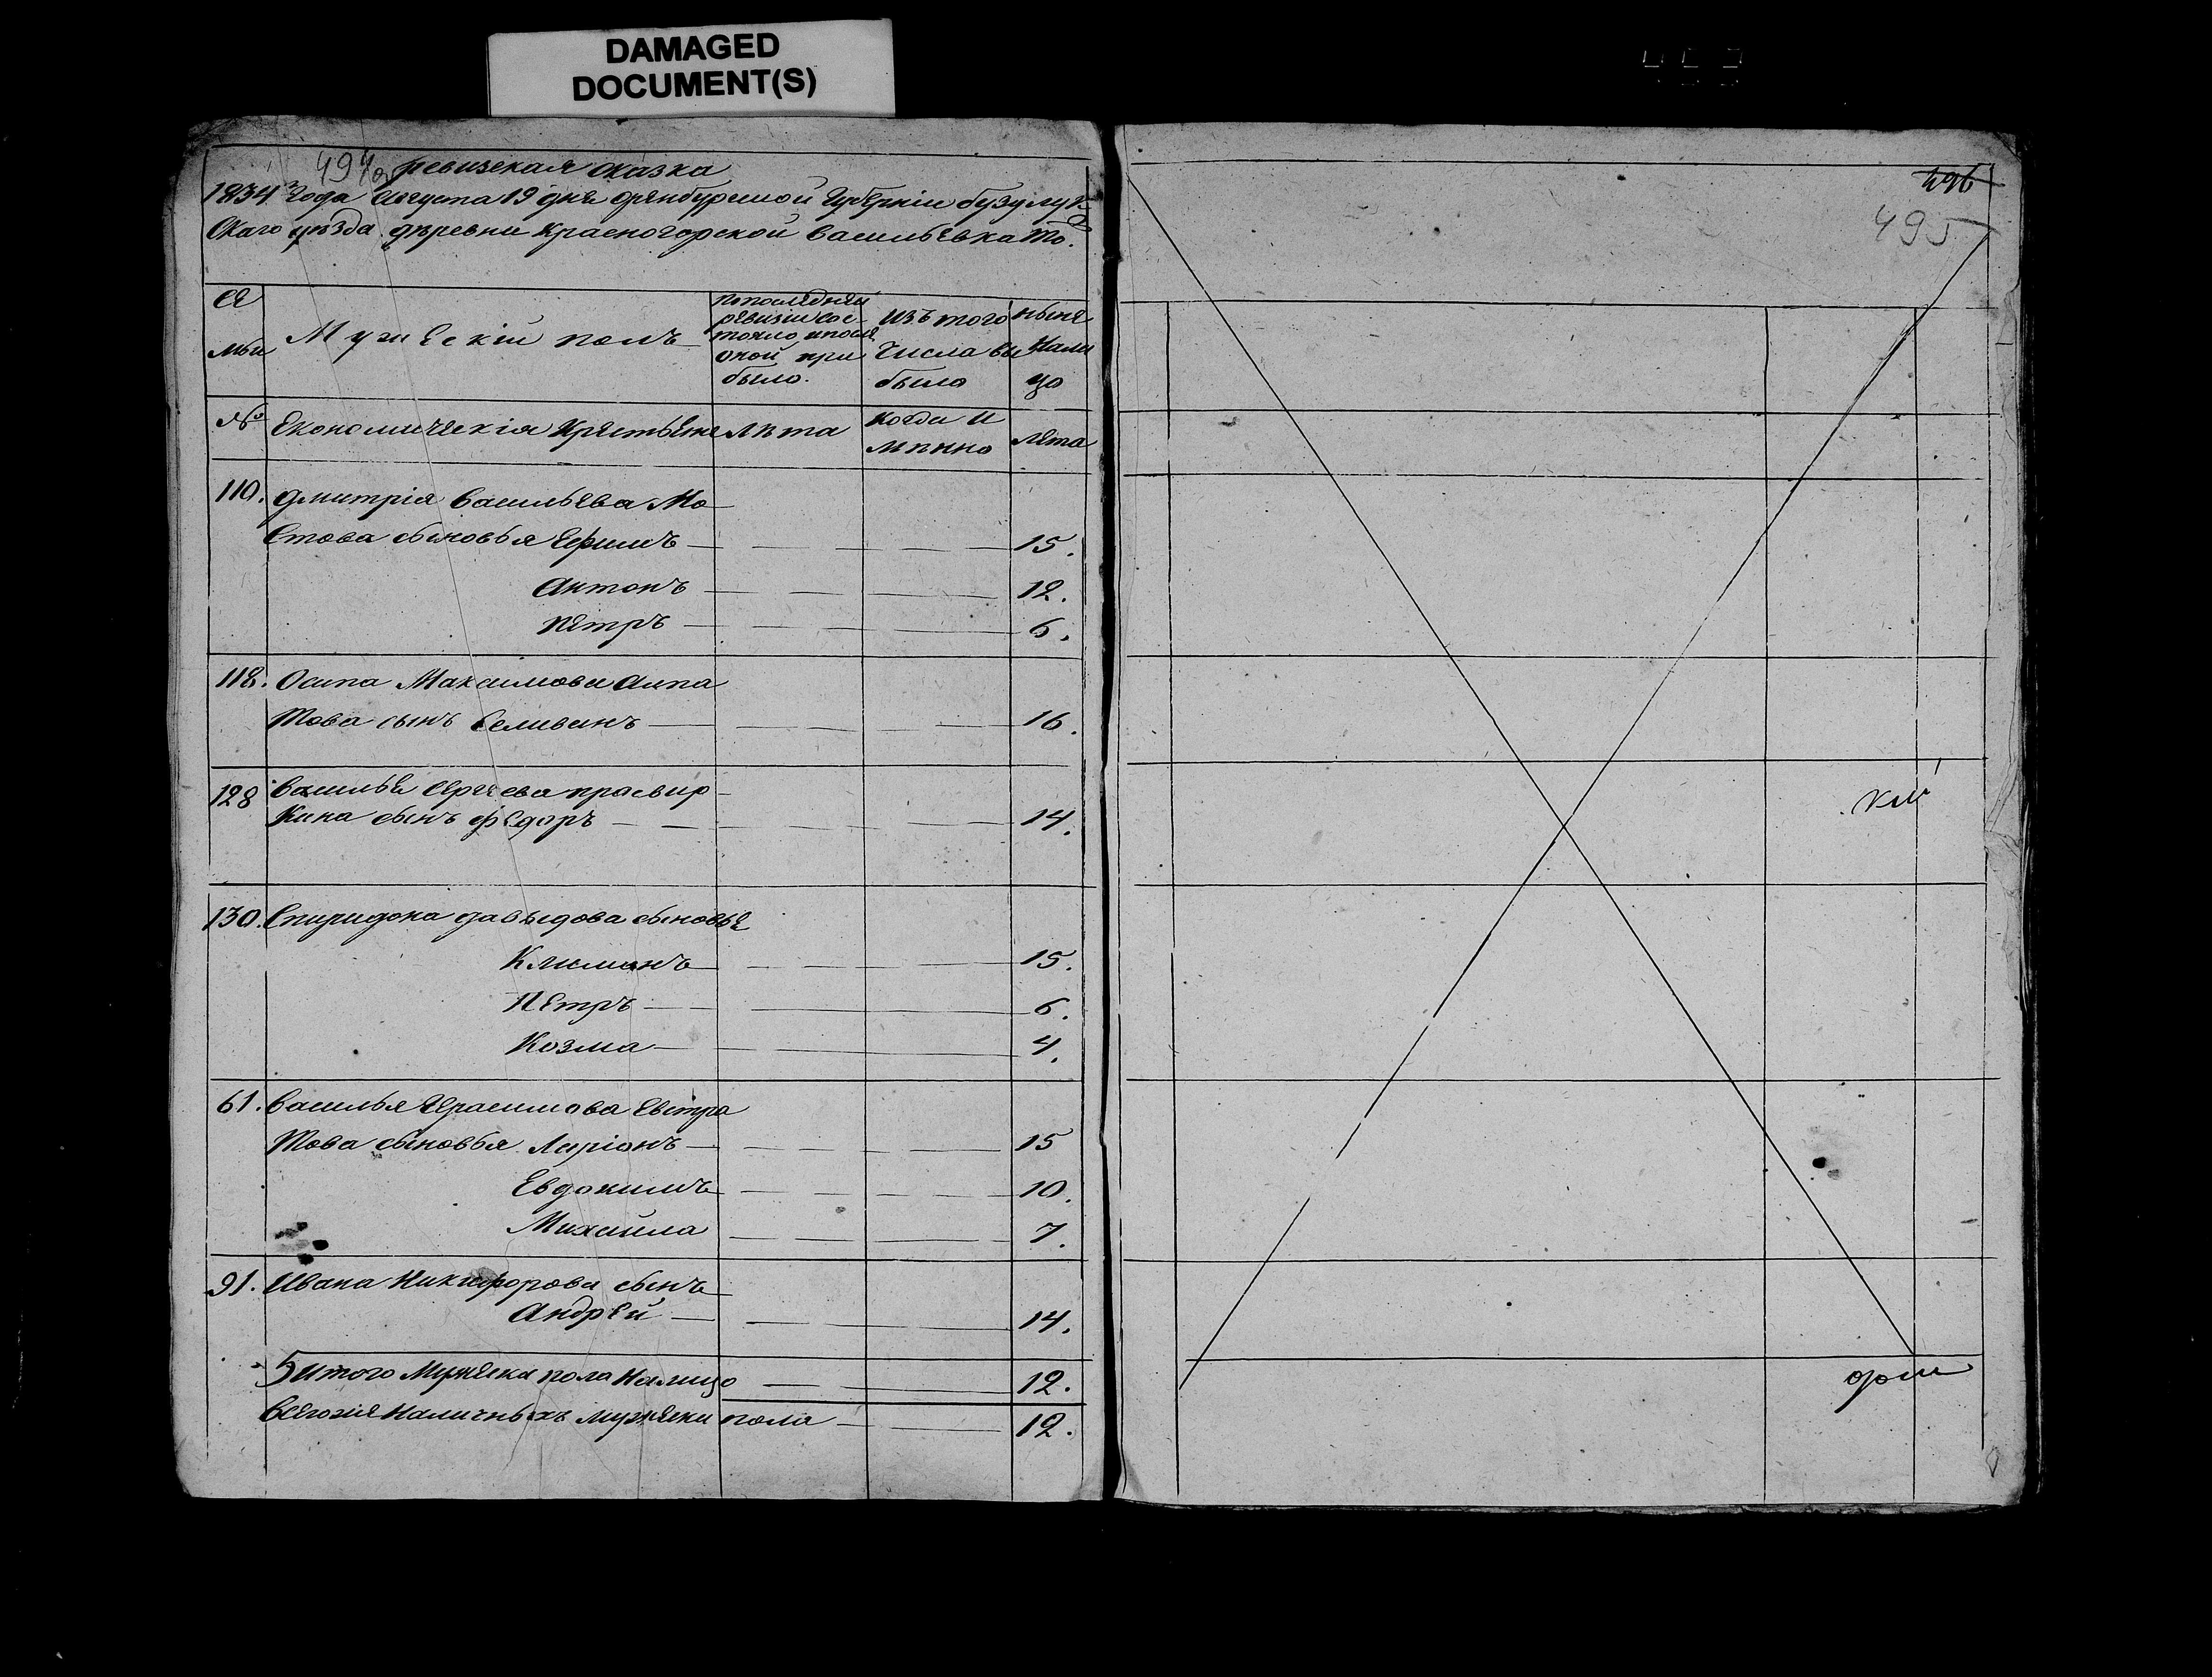 DAMAGED
DOCUMENT(S)
494 об
ревизская сказка
1834 Года августа 19 дня оренбурской Губерніи бузулук
Скаго уѣзда деревни красногорской васильевка то.
Се
мьи
Мужескій полъ
По последней
ревизии сос
тояло и после
оной при
было.
Изъ того
числа вы
было
ныне
нали
цо
№
Економическія крестьяне
лѣта
когда и
лета
110. дмитрія васильева Мо
стова сыновья Ефимъ 15.
антонъ 12.
петръ 6.
118. Осипа Максимова аипа
това сынъ Селиванъ 16.
128 василья Сергеева просвир
кина сынъ федоръ 14.
130. Спиридона давыдова сыновье
Климанъ 15.
Петръ 6.
Козма 4.
61. василья Герасимова Евстра
това сыновья Ларіонъ 15
Евдокимъ 10.
Михаила 7.
91. Ивана Никифорова сынъ
андрей 14.
Итого Мужеска пола Налицо 12.
всего же наличныхъ мужеска пола 12.
496
495
кій